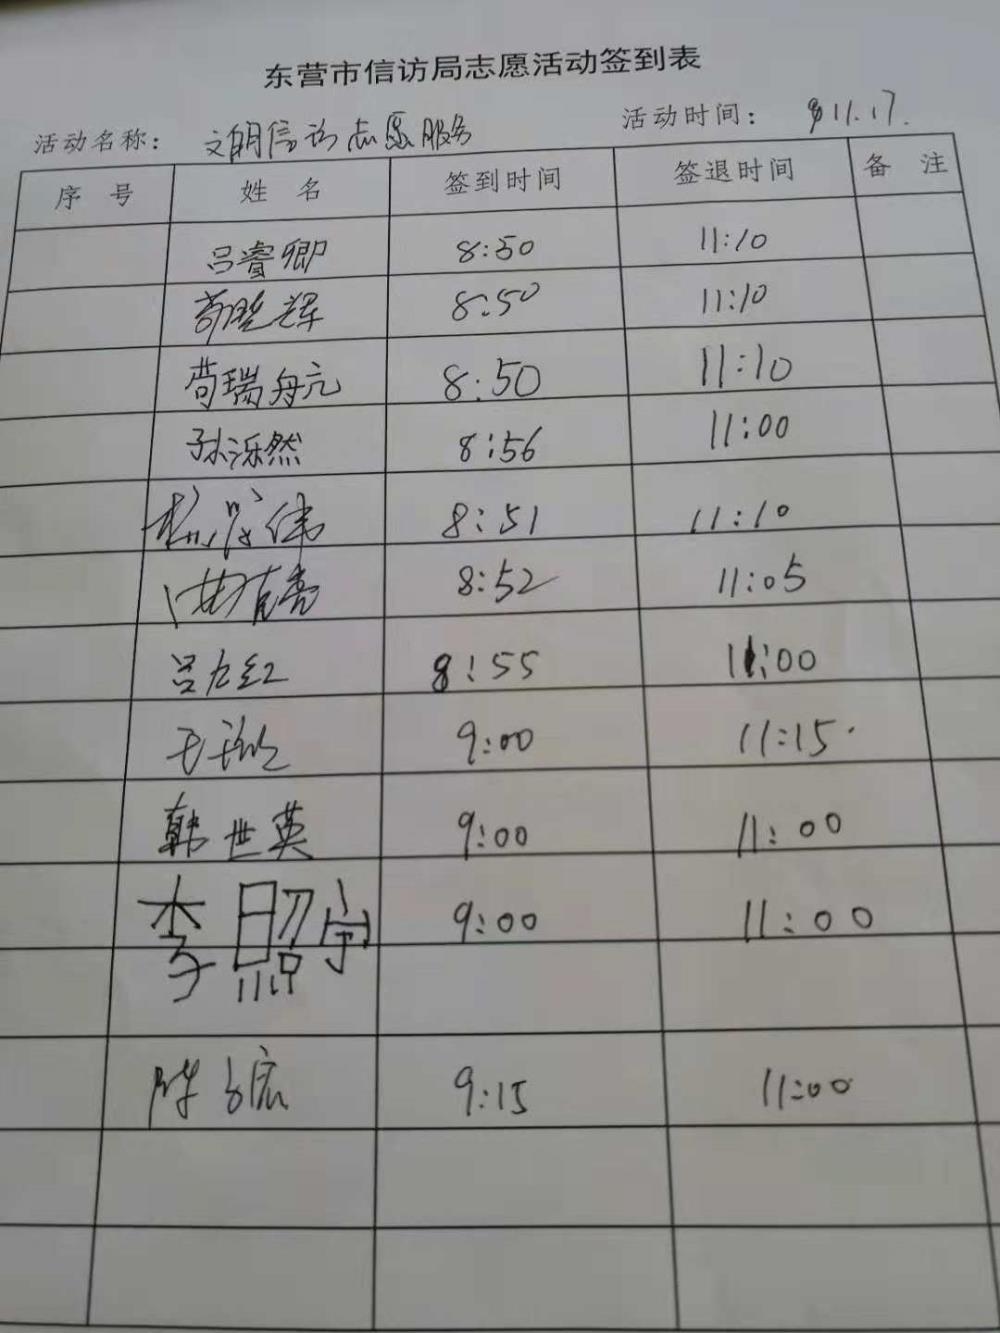 东营市信访局志愿活动签到表
活动名称: 文明信访志愿服务 活动时间: 11.17.
序号 姓名 签到时间 签退时间 备注
吕睿卿 8:50 11:10
苟晓辉 8:50 11:10
苟瑞舟元 8:50 11:10
孙泺然 8:56 11:00
8:51 11:10
8:52 11:05
吕 红 8:55 11:00
9:00 11:15
韩世英 9:00 11:00
李照宇 9:00 11:00
陈 宏 9:15 11:00